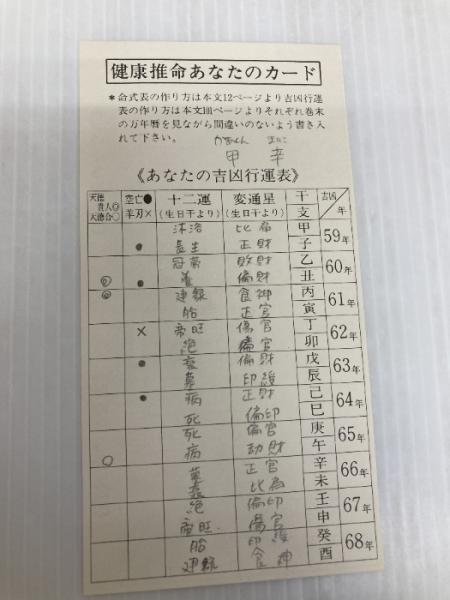 健康推命あなたのカード
＊命式表の作り方は本文12ページより吉凶行運
表の作り方は本文ページよりそれぞれ巻末
の万年暦を見ながら間違いのないよう書き入
れて下さい。
甲 辛
《あなたの吉凶行運表》
天徳貴人◎天徳合○ 空亡●羊刃× 十二運(生日干より) 変通星(生日干より) 干支 吉凶年
沐浴 比肩 甲 59年
● 長生 正財 子
冠帯 敗財 乙 60年
◎ ● 養 偏財 丑
◎ 建禄 食神 丙 61年
胎 正官 寅
× 帝旺 傷官 丁 62年
絶 偏官 卯
● 衰 偏財 戊 63年
墓 印綬 辰
● 病 正財 己 64年
死 偏印 巳
死 偏官 庚 65年
病 劫財 午
○ 墓 正官 辛 66年
衰 比肩 未
絶 偏印 壬 67年
帝旺 傷官 申
胎 印綬 癸 68年
建禄 食神 酉